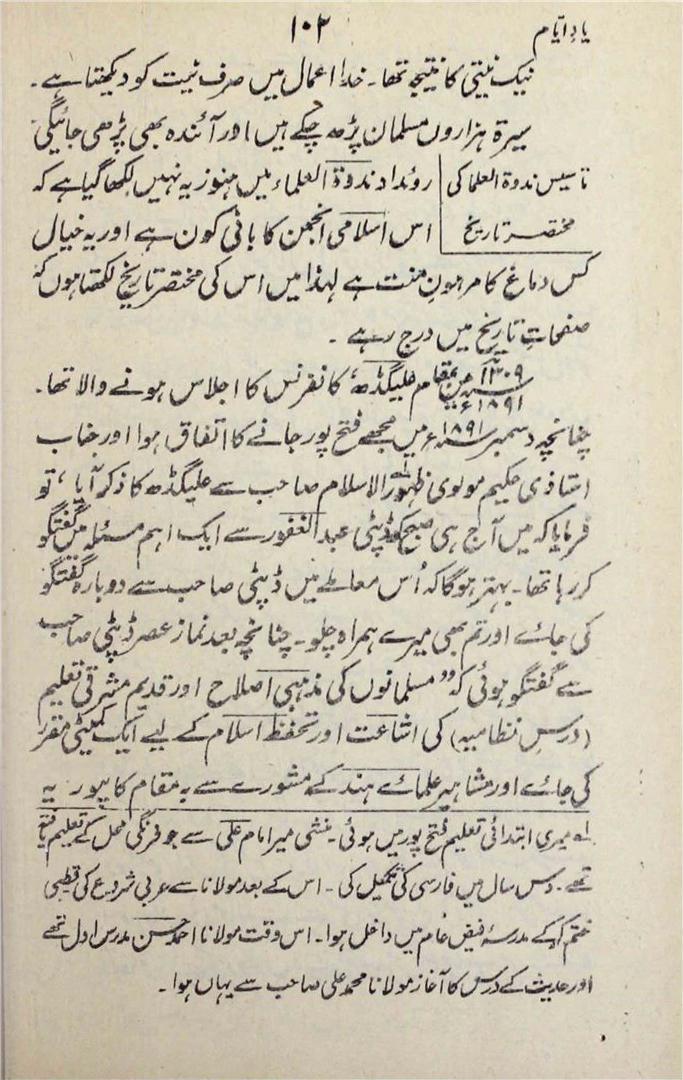 یادِ ایّام ۱۰۳
نیک نیتی کا نتیجہ تھا۔ خدا اعمال میں صرف نیت کو دیکھتا ہے۔
سیرۃ ہزاروں مسلمان پڑھ چکے ہیں اور آئندہ بھی پڑھی جائیگی
تاسیس ندوۃ العلما کی
مختصر تاریخ
روئداد ندوۃ العلماء میں ہنوز یہ نہیں لکھا گیا ہے کہ
اس اسلامی انجمن کا بانی کون ہے اور یہ خیال
کس دماغ کا مرہونِ منت ہے لہذا میں اس کی مختصر تاریخ لکھتا ہوں کہ
صفحاتِ تاریخ میں درج رہے۔
۱۳۰۹ھ ۱۸۹۱ء میں بمقام علیگڈھ، کانفرنس کا اجلاس ہونے والا تھا۔
چنانچہ دسمبر ۱۸۹۱ء میں مجھے فتح پور جانے کا اتفاق ہوا اور جناب
استاذی حکیم مولوی ظہور الاسلام صاحب سے علیگڈھ کا ذکر آیا، تو
فرمایا کہ میں آج ہی صبح کو ڈپٹی عبد الغفور سے ایک اہم مسئلہ میں گفتگو
کر رہا تھا۔ بہتر ہوگا کہ اُس معاملے میں ڈپٹی صاحب سے دوبارہ گفتگو
کی جائے اور تم بھی میرے ہمراہ چلو۔ چنانچہ بعد نماز عصر ڈپٹی صاحب
سے گفتگو ہوئی کہ "مسلمانوں کی مذہبی اصلاح اور قدیم مشرقی تعلیم
(درسِ نظامیہ) کی اشاعت اور تحفظ اسلام کے لیے ایک کمیٹی مقرر
کی جائے اور مشاہیر علمائے ہند کے مشورے سے بہ مقام کانپور یہ
لہ میری ابتدائی تعلیم فتح پور میں ہوئی۔ منشی میر امام علی سے جو فرنگی محل کے تعلیم یافتہ
تھے۔ دس سال میں فارسی کی تکمیل کی۔ اس کے بعد مولانا سے عربی شروع کی قطبی
ختم کرکے مدرسۂ فیض عام میں داخل ہوا۔ اس وقت مولانا احمد حسن مدرس اول تھے
اور حدیث کے درس کا آغاز مولانا محمد علی صاحب سے یہاں ہوا۔